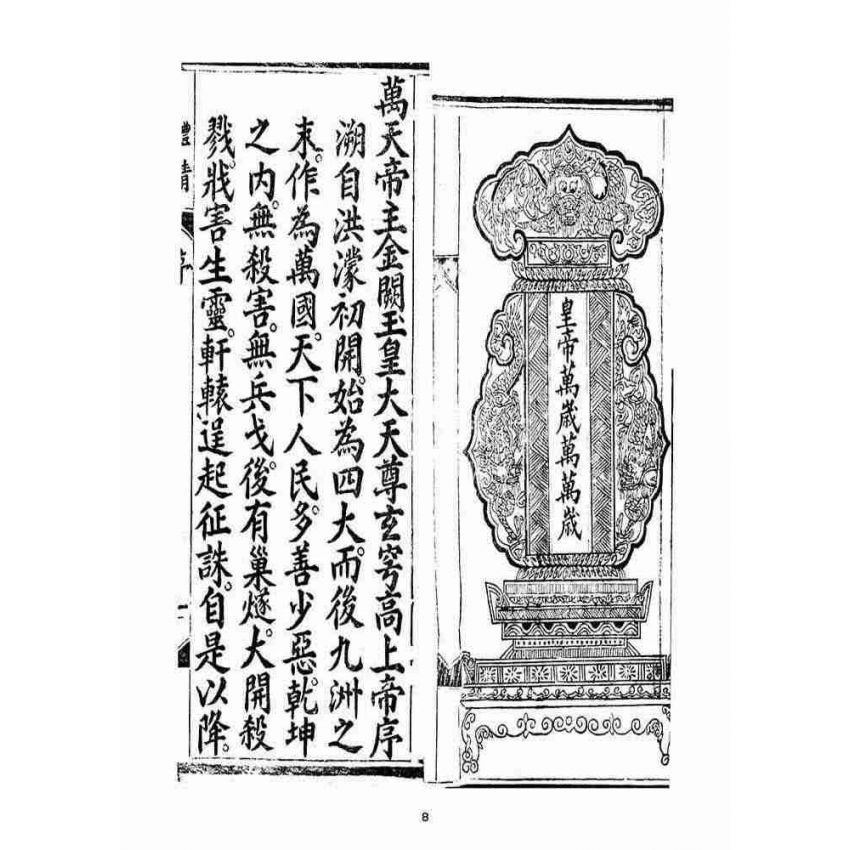 皇帝萬歲萬萬歲
萬天帝主金闕玉皇大天尊玄穹高上帝序
溯自洪濛初開。始為四大。而後九洲之
末。作為萬國。天下人民。多善少惡。乾坤
之內。無殺害。無兵戈。後有巢燧。大開殺
戮。戕害生靈。軒轅逞起征誅。自是以降。
序
8